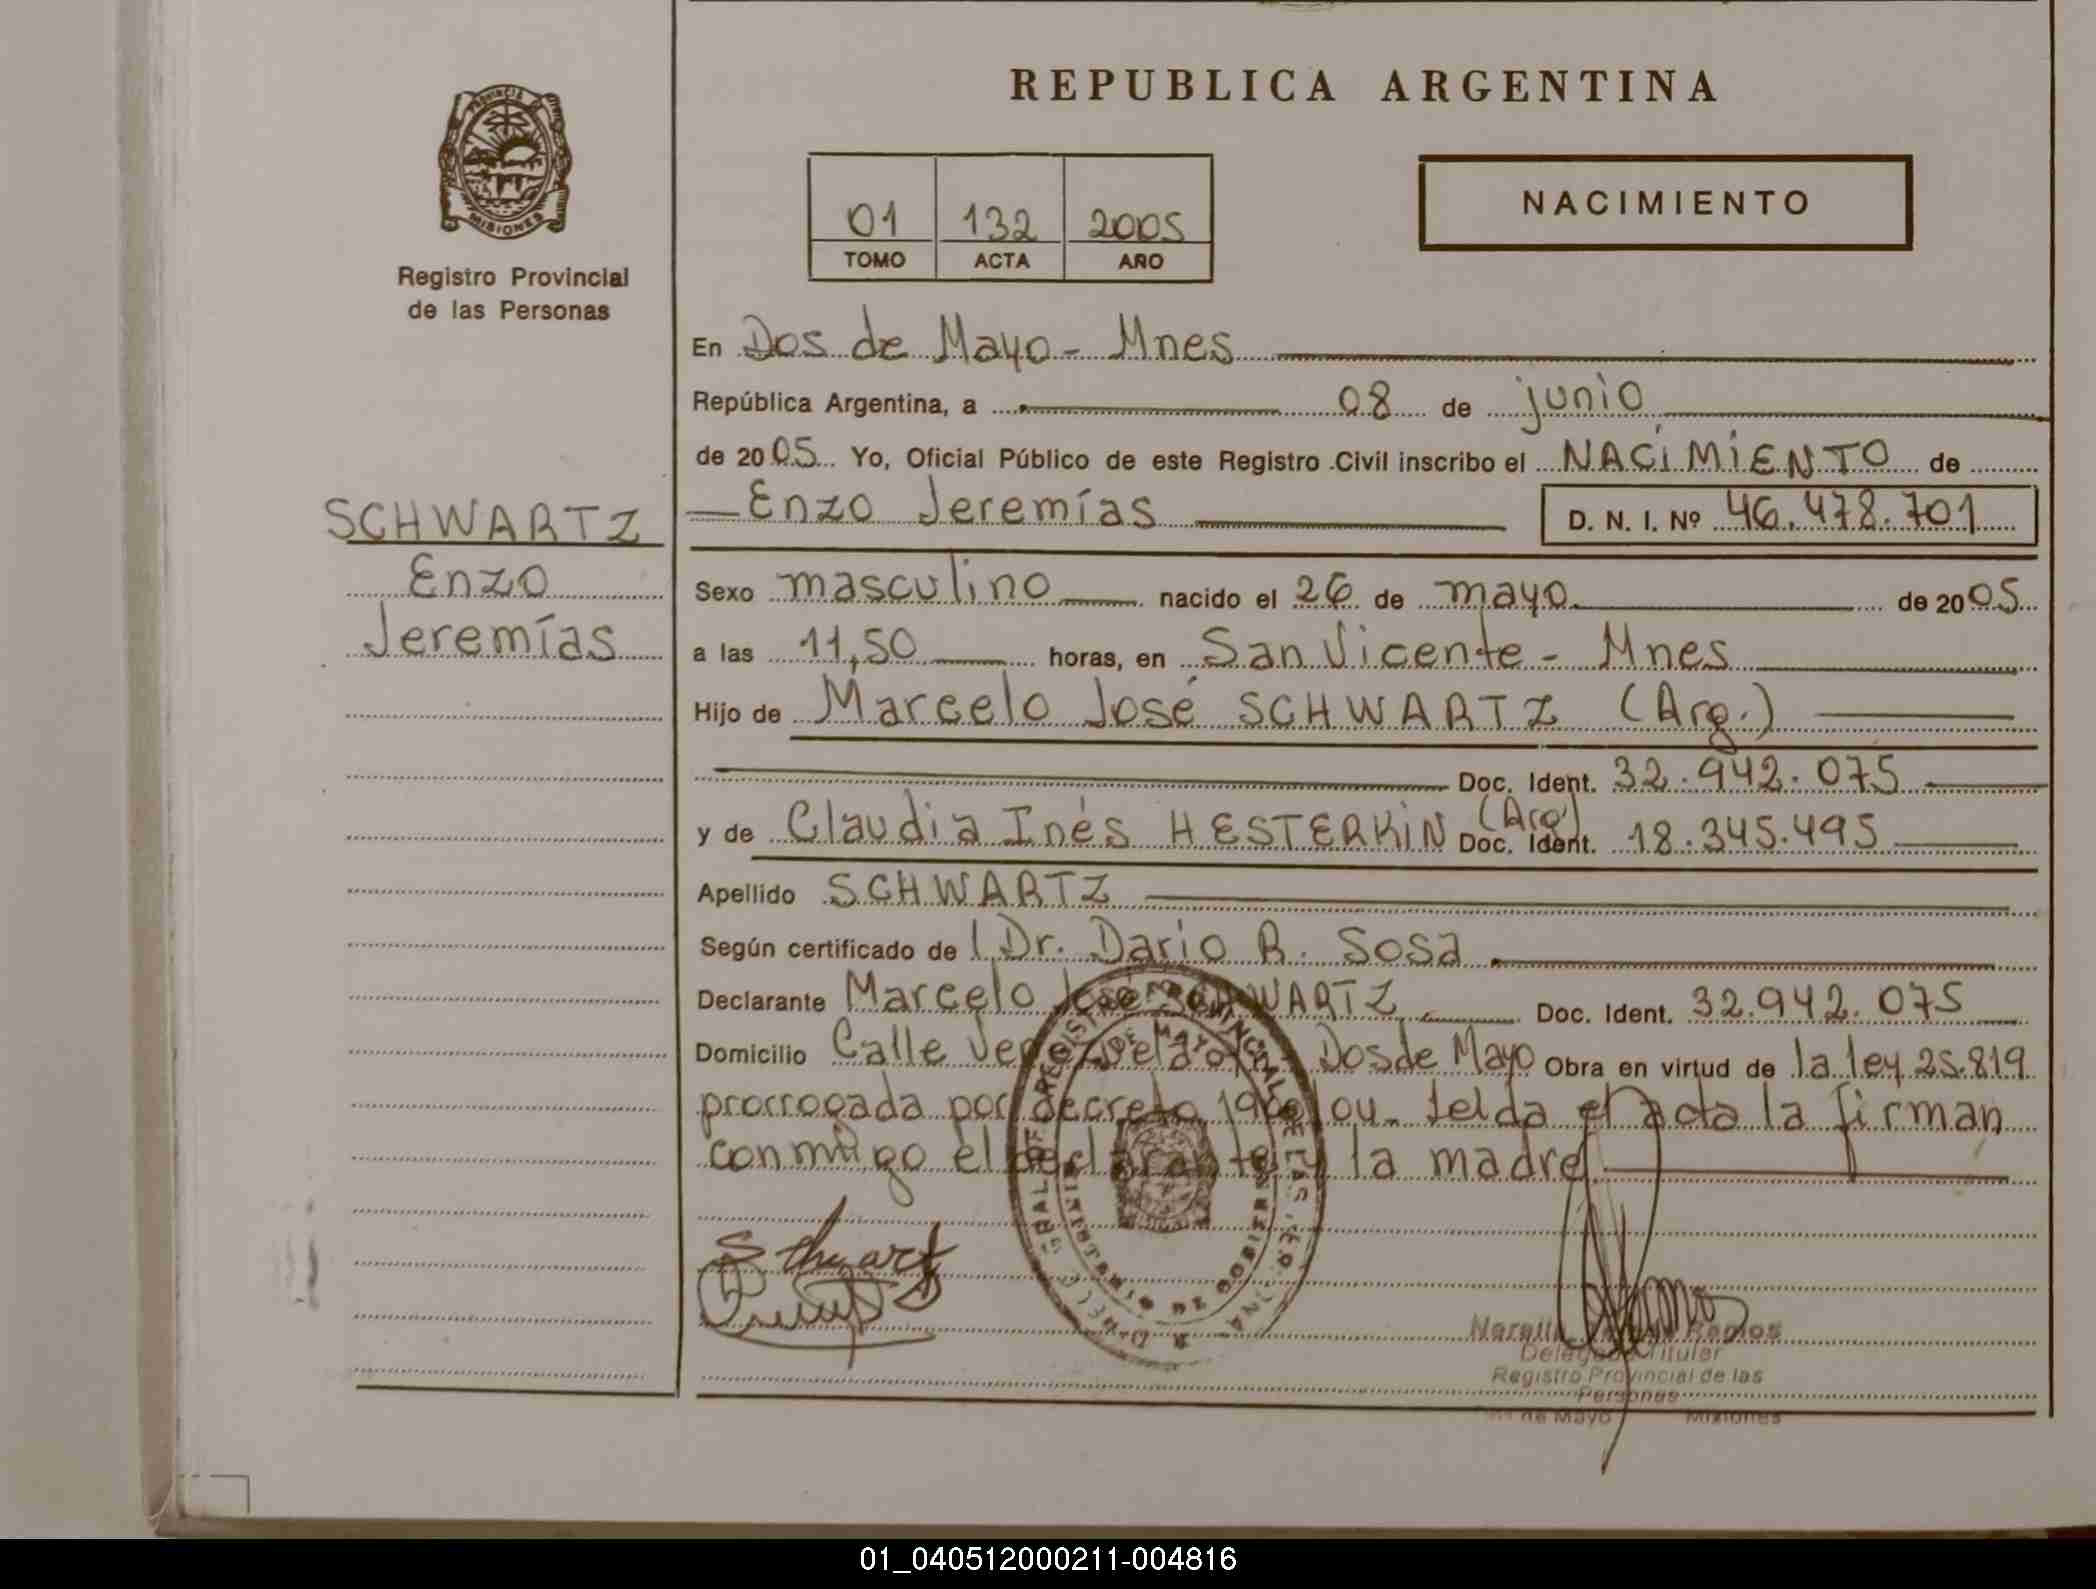 REPUBLICA ARGENTINA
PROVINCIA DE
MISIONES
Registro Provincial
de las Personas
01 132 2005
TOMO ACTA AÑO
NACIMIENTO
En Dos de Mayo - Mnes
República Argentina, a 08 de junio
de 2005 Yo, Oficial Público de este Registro Civil inscribo el NACIMIENTO de
Enzo Jeremías D. N. I. Nº 46.478.701
SCHWARTZ
Enzo
Jeremías
Sexo masculino nacido el 26 de mayo de 2005
a las 11,50 horas, en San Vicente - Mnes
Hijo de Marcelo José SCHWARTZ (Arg.)
Doc. Ident. 32.942.075
y de Claudia Inés HESTERKIN (Arg) Doc. Ident. 18.345.495
Apellido SCHWARTZ
Según certificado de l Dr. Dario R. Sosa
Declarante Marcelo José SCHWARTZ Doc. Ident. 32.942.075
Domicilio Calle Dos de Mayo Obra en virtud de la ley 25.819
prorrogada por decreto leida el acta la firman
conmigo el declarante y la madre
Schwartz
Ramos
Delegada Titular
Registro Provincial de las
Personas
de Mayo Misiones
01_040512000211-004816